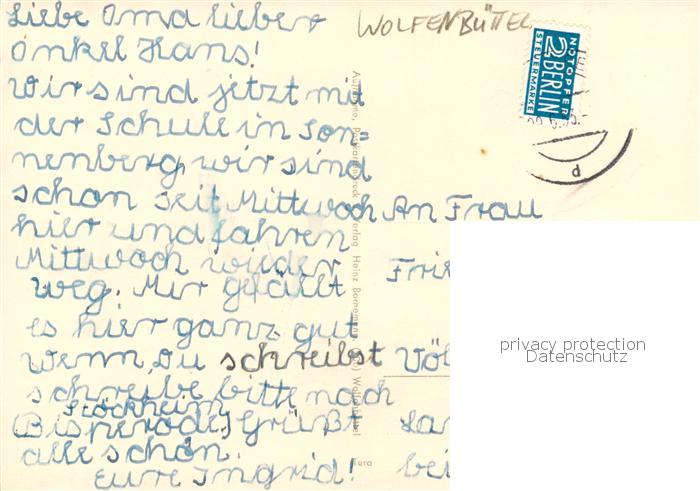 Liebe Oma lieber
Onkel Hans!
Wir sind jetzt mit
der Schule in Son=
nenberg, wir sind
schon seit Mittwoch
hier und fahren
Mittwoch wieder
weg. Mir gefällt
es hier ganz gut
wenn, Du schreibst
schreibe bitte nach
Stöckheim
(Bisperode) Grüßt
alle schön.
Eure Ingrid!
WOLFENBÜTTEL
NOTOPFER
2 BERLIN
STEUERMARKE
An Frau
Frie
Völ
bei
Verlag Heinz Bornemann
privacy protection
Datenschutz